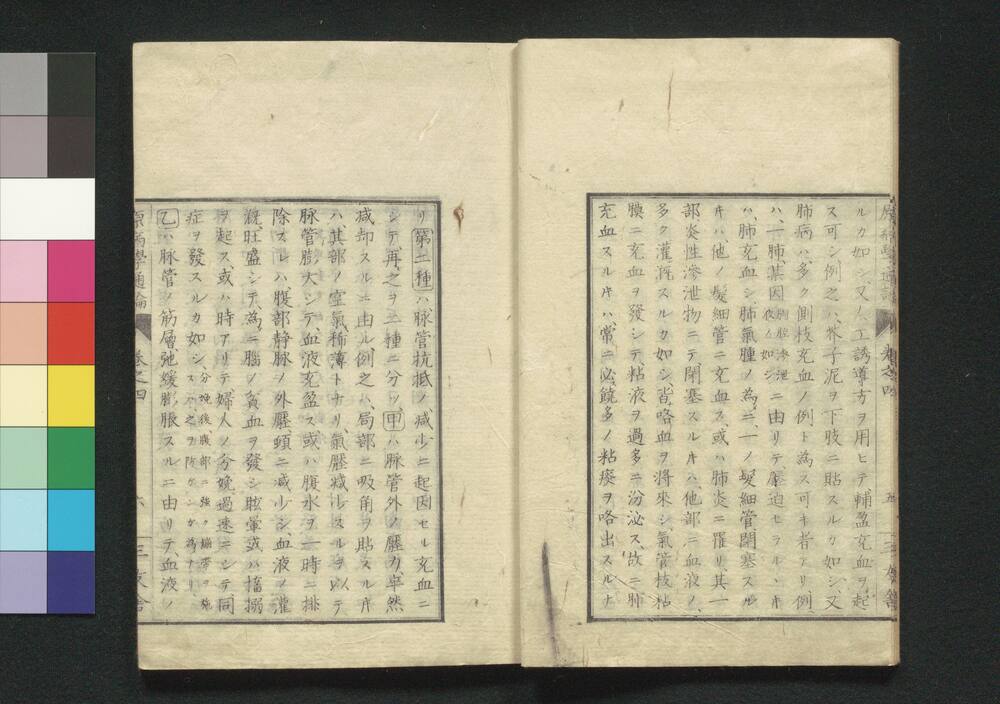 ルカ如シ、又人工誘導方ヲ用ヒテ輔盈充血ヲ起
ス可シ例之ハ、芥子泥ヲ下肢ニ貼スルカ如シ、又
肺病ハ、多ク側枝充血ノ例ト為ス可キ者アリ例
ハ、一肺、某因胸腔滲泄液ノ如シニ由リテ、壓迫セラルヽキ
ハ、肺充血シ、肺氣腫ノ為ニ、一ノ髮細管閉塞スル
キハ他ノ髮細管ニ充血ス、或ハ肺炎ニ罹リ、其一
部炎性滲泄物ニテ閉塞スルキハ他部ニ血液ノ、
多ク灌漑スルカ如シ、皆咯血ヲ將來シ、氣管枝粘
膜ニ充血ヲ發シテ粘液ヲ過多ニ汾泌ス、故ニ肺
充血スルキハ、常ニ必、饒多ノ粘痰ヲ咯出スルナ
リ 第二種ハ脉管抗抵ノ減少ニ起因セル充血ニ
シテ、再之ヲ二種ニ分ツ、甲ハ脉管外ノ壓力、卒然
減却スルニ由ル例之ハ、局部ニ吸角ヲ貼スルキ
ハ、其部ノ空氣稀薄トナリ、氣壓減少スルヲ以テ
脉管膨大シテ、血液充盈ス或ハ腹水ヲ一時ニ排
除スレハ、腹部静脉ノ外壓、頓ニ減少シ、血液ノ灌
漑、旺盛シテ、為ニ腦ノ貧血ヲ發シ眩暈或ハ搐搦
ヲ起ス或ハ時アリテ婦人ノ分娩過速ニシテ、同
症ヲ發スルカ如シ、分娩後、腹部ニ強ク繃帯ヲ施スハ之ヲ防ケンカ為ナリ
乙ハ脉管ノ筋層弛緩膨脹スルニ由リテ、血液ノ
原病學通論 巻之四 六 三友舎